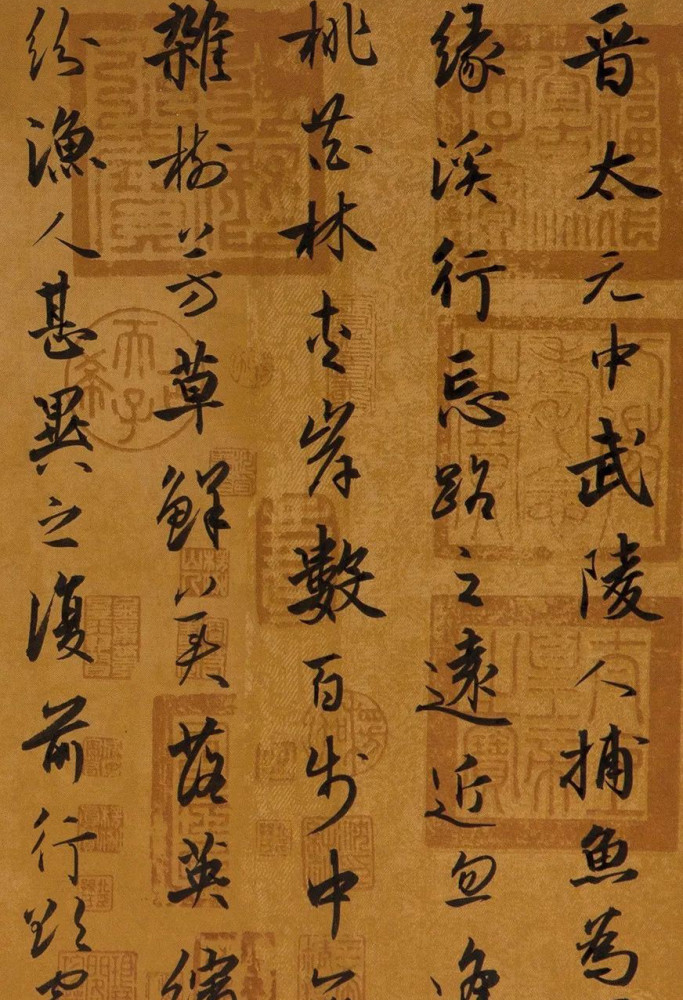 晋太元中武陵人捕魚為
緣溪行忘路之遠近忽逢
桃花林夾岸數百步中無
雜樹芳草鮮美落英繽
紛漁人甚異之復前行欲窮